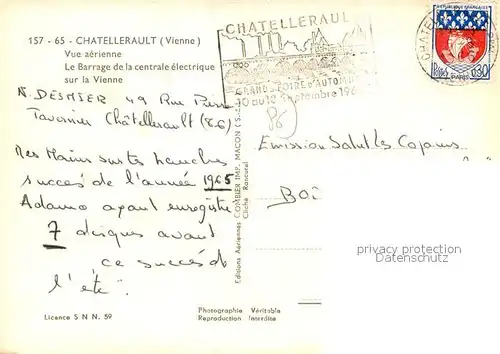 157 - 65 - CHATELLERAULT (Vienne)
Vue aérienne
Le Barrage de la centrale électrique
sur la Vienne
N. DESMIER 49 Rue Pierre
Tavannier Châtellerault (86)
Mes Mains sur tes hanches
succès de l'année 1965
Adamo ayant enregistré
7 disques avant
ce succès de
l'été.
Licence S N N. 59
Photographie Véritable
Reproduction Interdite
Editions Aériennes COMBIER IMP. MACON (S.-
Cliché Rancurel
CHATELLERAUL
GRANDE FOIRE D'AUTOMNE
10 au 12 Septembre 196
CHATELL
REPUBLIQUE FRANCAISE
Postes 0,30
PARIS
86
Emission Salut les Copains
privacy protection
Datenschutz